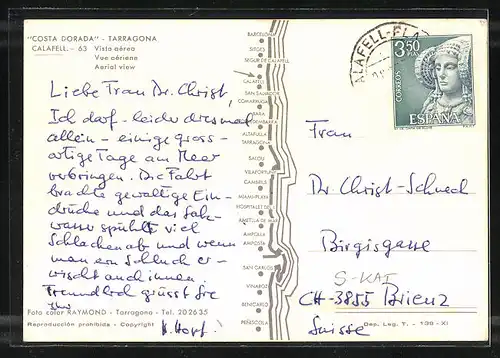 "COSTA DORADA" - TARRAGONA
CALAFELL. - 63 Vista aérea
Vue aérienne
Aerial view
Liebe Frau Dr. Christ,
Ich darf - leider diesmal
allein - einige gross-
artige Tage am Meer
verbringen. Die Fahrt
brachte gewaltige Ein-
drücke und das Salz-
wasser spühlt viel
Schlacken ab und wenn
man ein Schluck er-
wischt auch innen.
Freundlich grüsst Sie
Ihr
K. Hopf
Foto color RAYMOND - Tarragona - Tel. 202635
Reproducción prohibida - Copyright
BARCELONA
SITGES
SEGUR DE CALAFELL
CALAFELL
SAN SALVADOR
COMARRUGA
ALTAFULLA
TARRAGONA
SALOU
VILAFORTUNY
CAMBRILS
MIAMI-PLAYA
HOSPITALET DE
AMETLLA DE MAR
AMPOLLA
AMPOSTA
SAN CARLOS
VINAROZ
BENICARLO
PEÑISCOLA
CALAFELL-PLAYA
3,50
PTAS
CORREOS
ESPAÑA
Frau
Dr. Christ-Schneeb
Birgisgasse
S-KAT
CH-3855 Brienz
Suisse
Dep. Leg. T. - 139 - XI